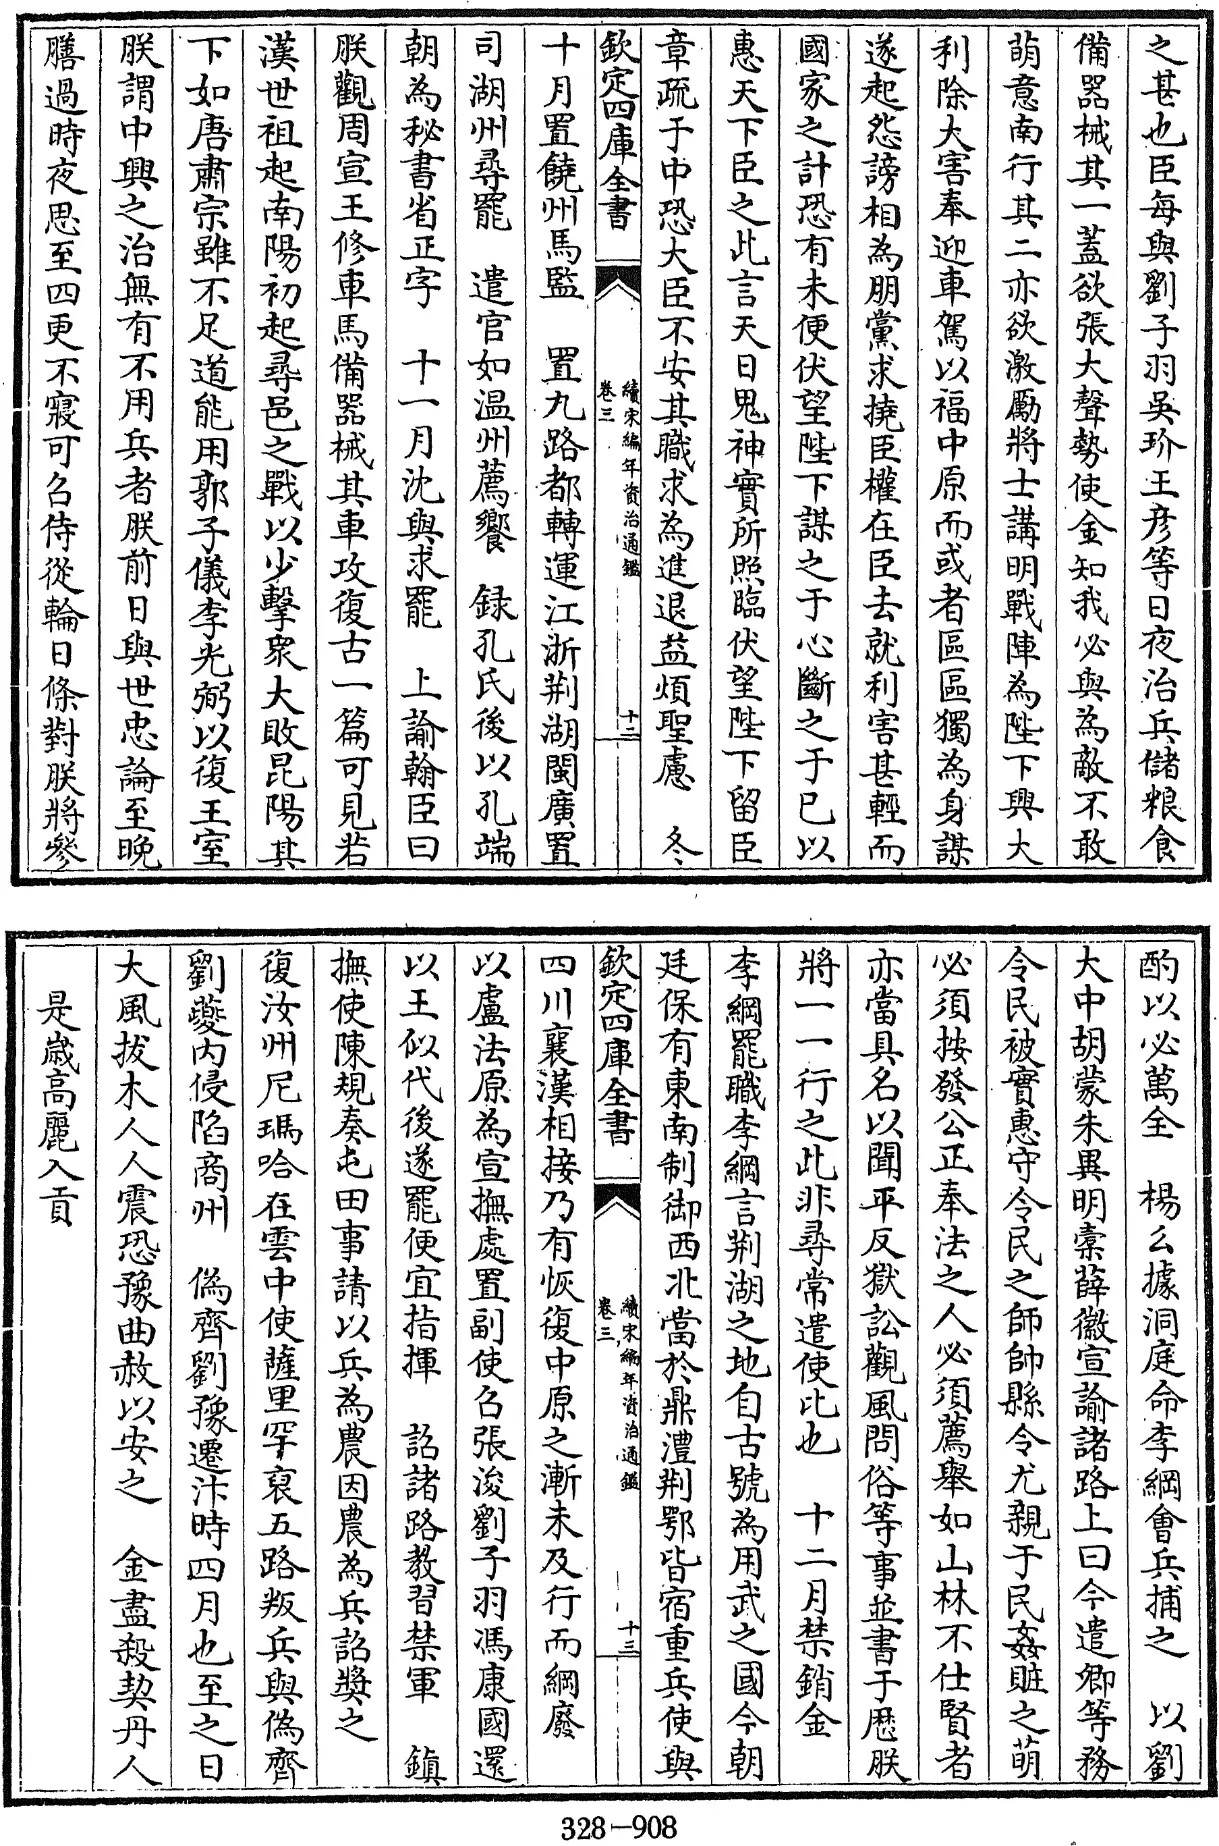 之甚也臣每與劉子羽吳玠王彥等日夜治兵儲粮食
備器械其一蓋欲張大聲勢使金知我必與為敵不敢
萌意南行其二亦欲激勵將士講明戰陣為陛下興大
利除大害奉迎車駕以福中原而或者區區獨為身謀
遂起怨謗相為朋黨求撓臣權在臣去就利害甚輕而
國家之計恐有未便伏望陛下謀之于心斷之于已以
惠天下臣之此言天日鬼神實所照臨伏望陛下留臣
章疏于中恐大臣不安其職求為進退益煩聖慮 冬
欽定四庫全書 續宋編年資治通鑑 卷三 十二
十月置饒州馬監 置九路都轉運江浙荆湖閩廣置
司湖州尋罷 遣官如温州薦饗 録孔氏後以孔端
朝為秘書省正字 十一月沈與求罷 上諭翰臣曰
朕觀周宣王修車馬備器械其車攻復古一篇可見若
漢世祖起南陽初起尋邑之戰以少擊衆大敗昆陽其
下如唐肅宗雖不足道能用郭子儀李光弼以復王室
朕謂中興之治無有不用兵者朕前日與世忠論至晚
膳過時夜思至四更不寢可召侍從輪日條對朕將參
酌以必萬全 楊么據洞庭命李綱會兵捕之 以劉
大中胡蒙朱異明橐薛徽宣諭諸路上曰今遣卿等務
令民被實惠守令民之師帥縣令尤親于民姦賍之萌
必須按發公正奉法之人必須薦舉如山林不仕賢者
亦當具名以聞平反獄訟觀風問俗等事並書于歷朕
將一一行之此非尋常遣使比也 十二月禁銷金
李綱罷職李綱言荆湖之地自古號為用武之國今朝
廷保有東南制御西北當於鼎澧荆鄂皆宿重兵使與
欽定四庫全書 續宋編年資治通鑑 卷三 十三
四川襄漢相接乃有恢復中原之漸未及行而綱廢
以盧法原為宣撫處置副使召張浚劉子羽馮康國還
以王似代後遂罷便宜指揮 詔諸路教習禁軍 鎮
撫使陳規奏屯田事請以兵為農因農為兵詔獎之
復汝州尼瑪哈在雲中使薩里罕裒五路叛兵與偽齊
劉夔内侵陷商州 偽齊劉豫遷汴時四月也至之日
大風拔木人人震恐豫曲赦以安之 金盡殺契丹人
是嵗高麗入貢
328-908